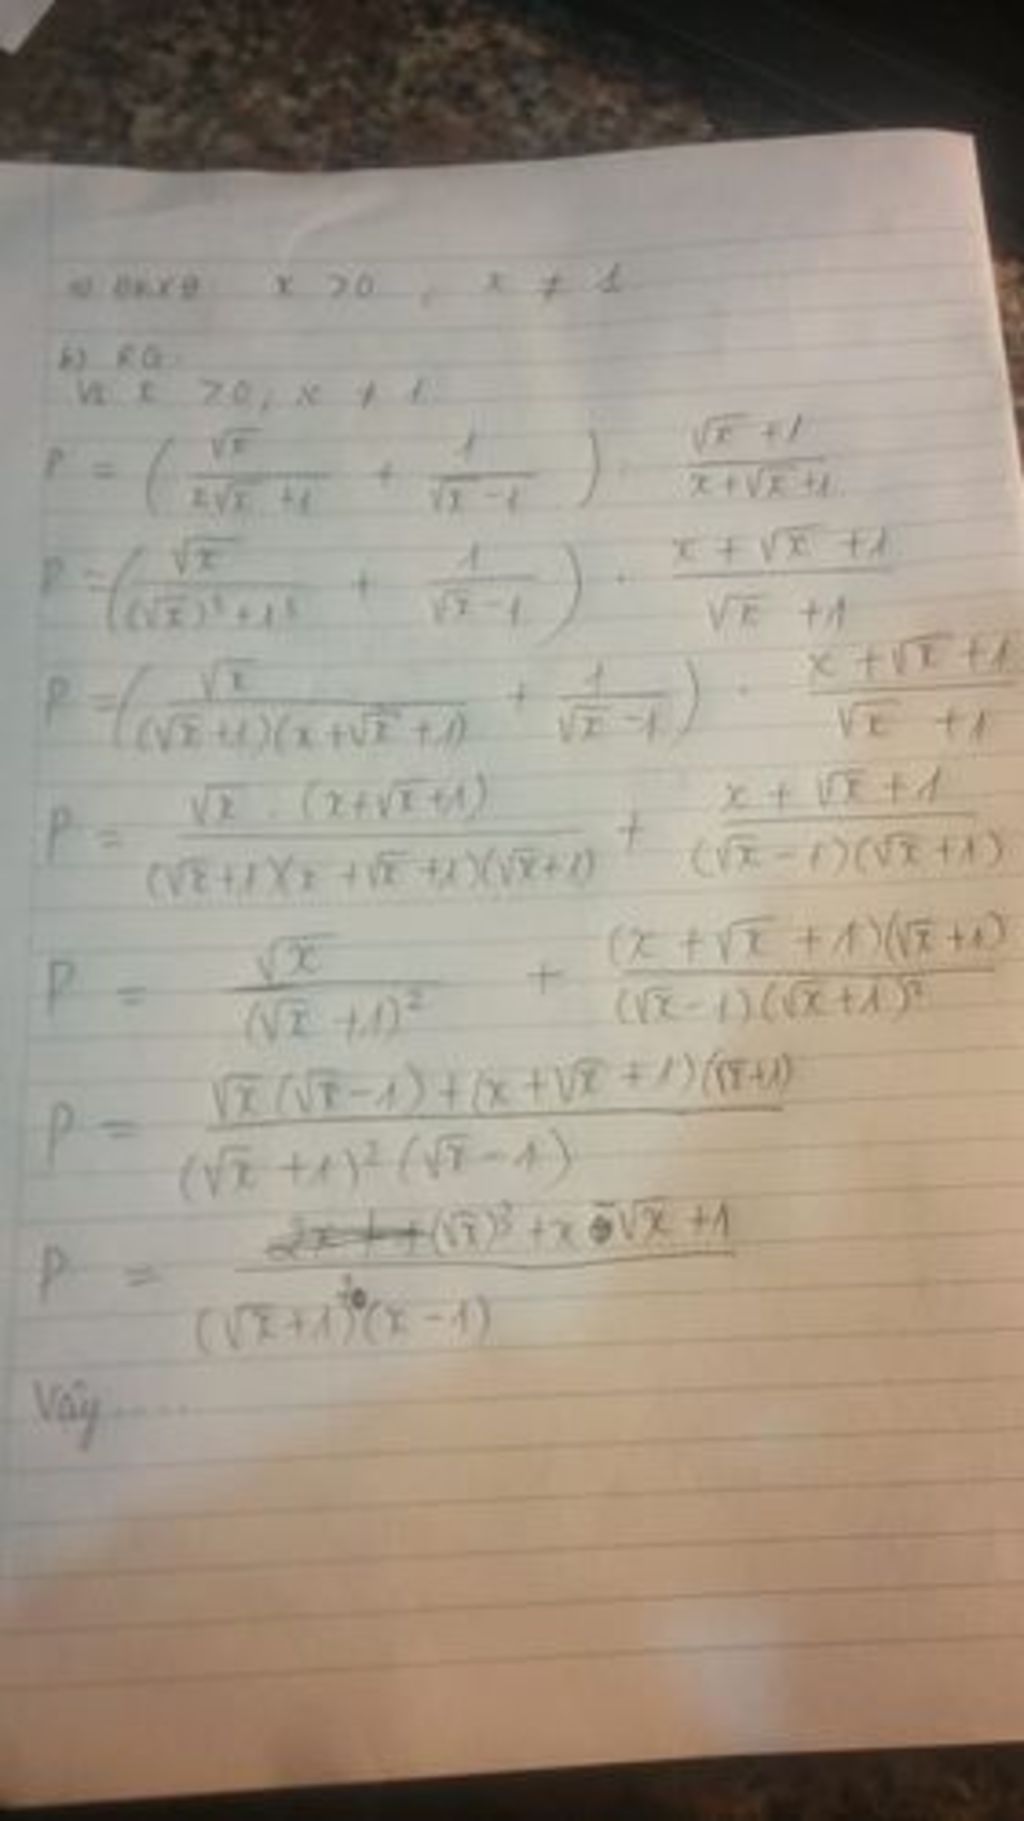 a) ĐKXĐ: x >0 , x ≠ 1
b) RG:
Với x >0, x ≠ 1
P = ( √x / (x√x + 1) + 1 / (√x - 1) ) : (√x + 1) / (x + √x + 1)
P = ( √x / ((√x)³ + 1³) + 1 / (√x - 1) ) . (x + √x + 1) / (√x + 1)
P = ( √x / ((√x + 1)(x + √x + 1)) + 1 / (√x - 1) ) . (x + √x + 1) / (√x + 1)
P = √x . (x + √x + 1) / ((√x + 1)(x + √x + 1)(√x + 1)) + (x + √x + 1) / ((√x - 1)(√x + 1))
P = √x / (√x + 1)² + (x + √x + 1)(√x + 1) / ((√x - 1)(√x + 1)²)
P = (√x(√x - 1) + (x + √x + 1)(√x + 1)) / ((√x + 1)²(√x - 1))
P = ((√x)³ + x √x + 1) / ((√x + 1)(x - 1))
Vậy.....